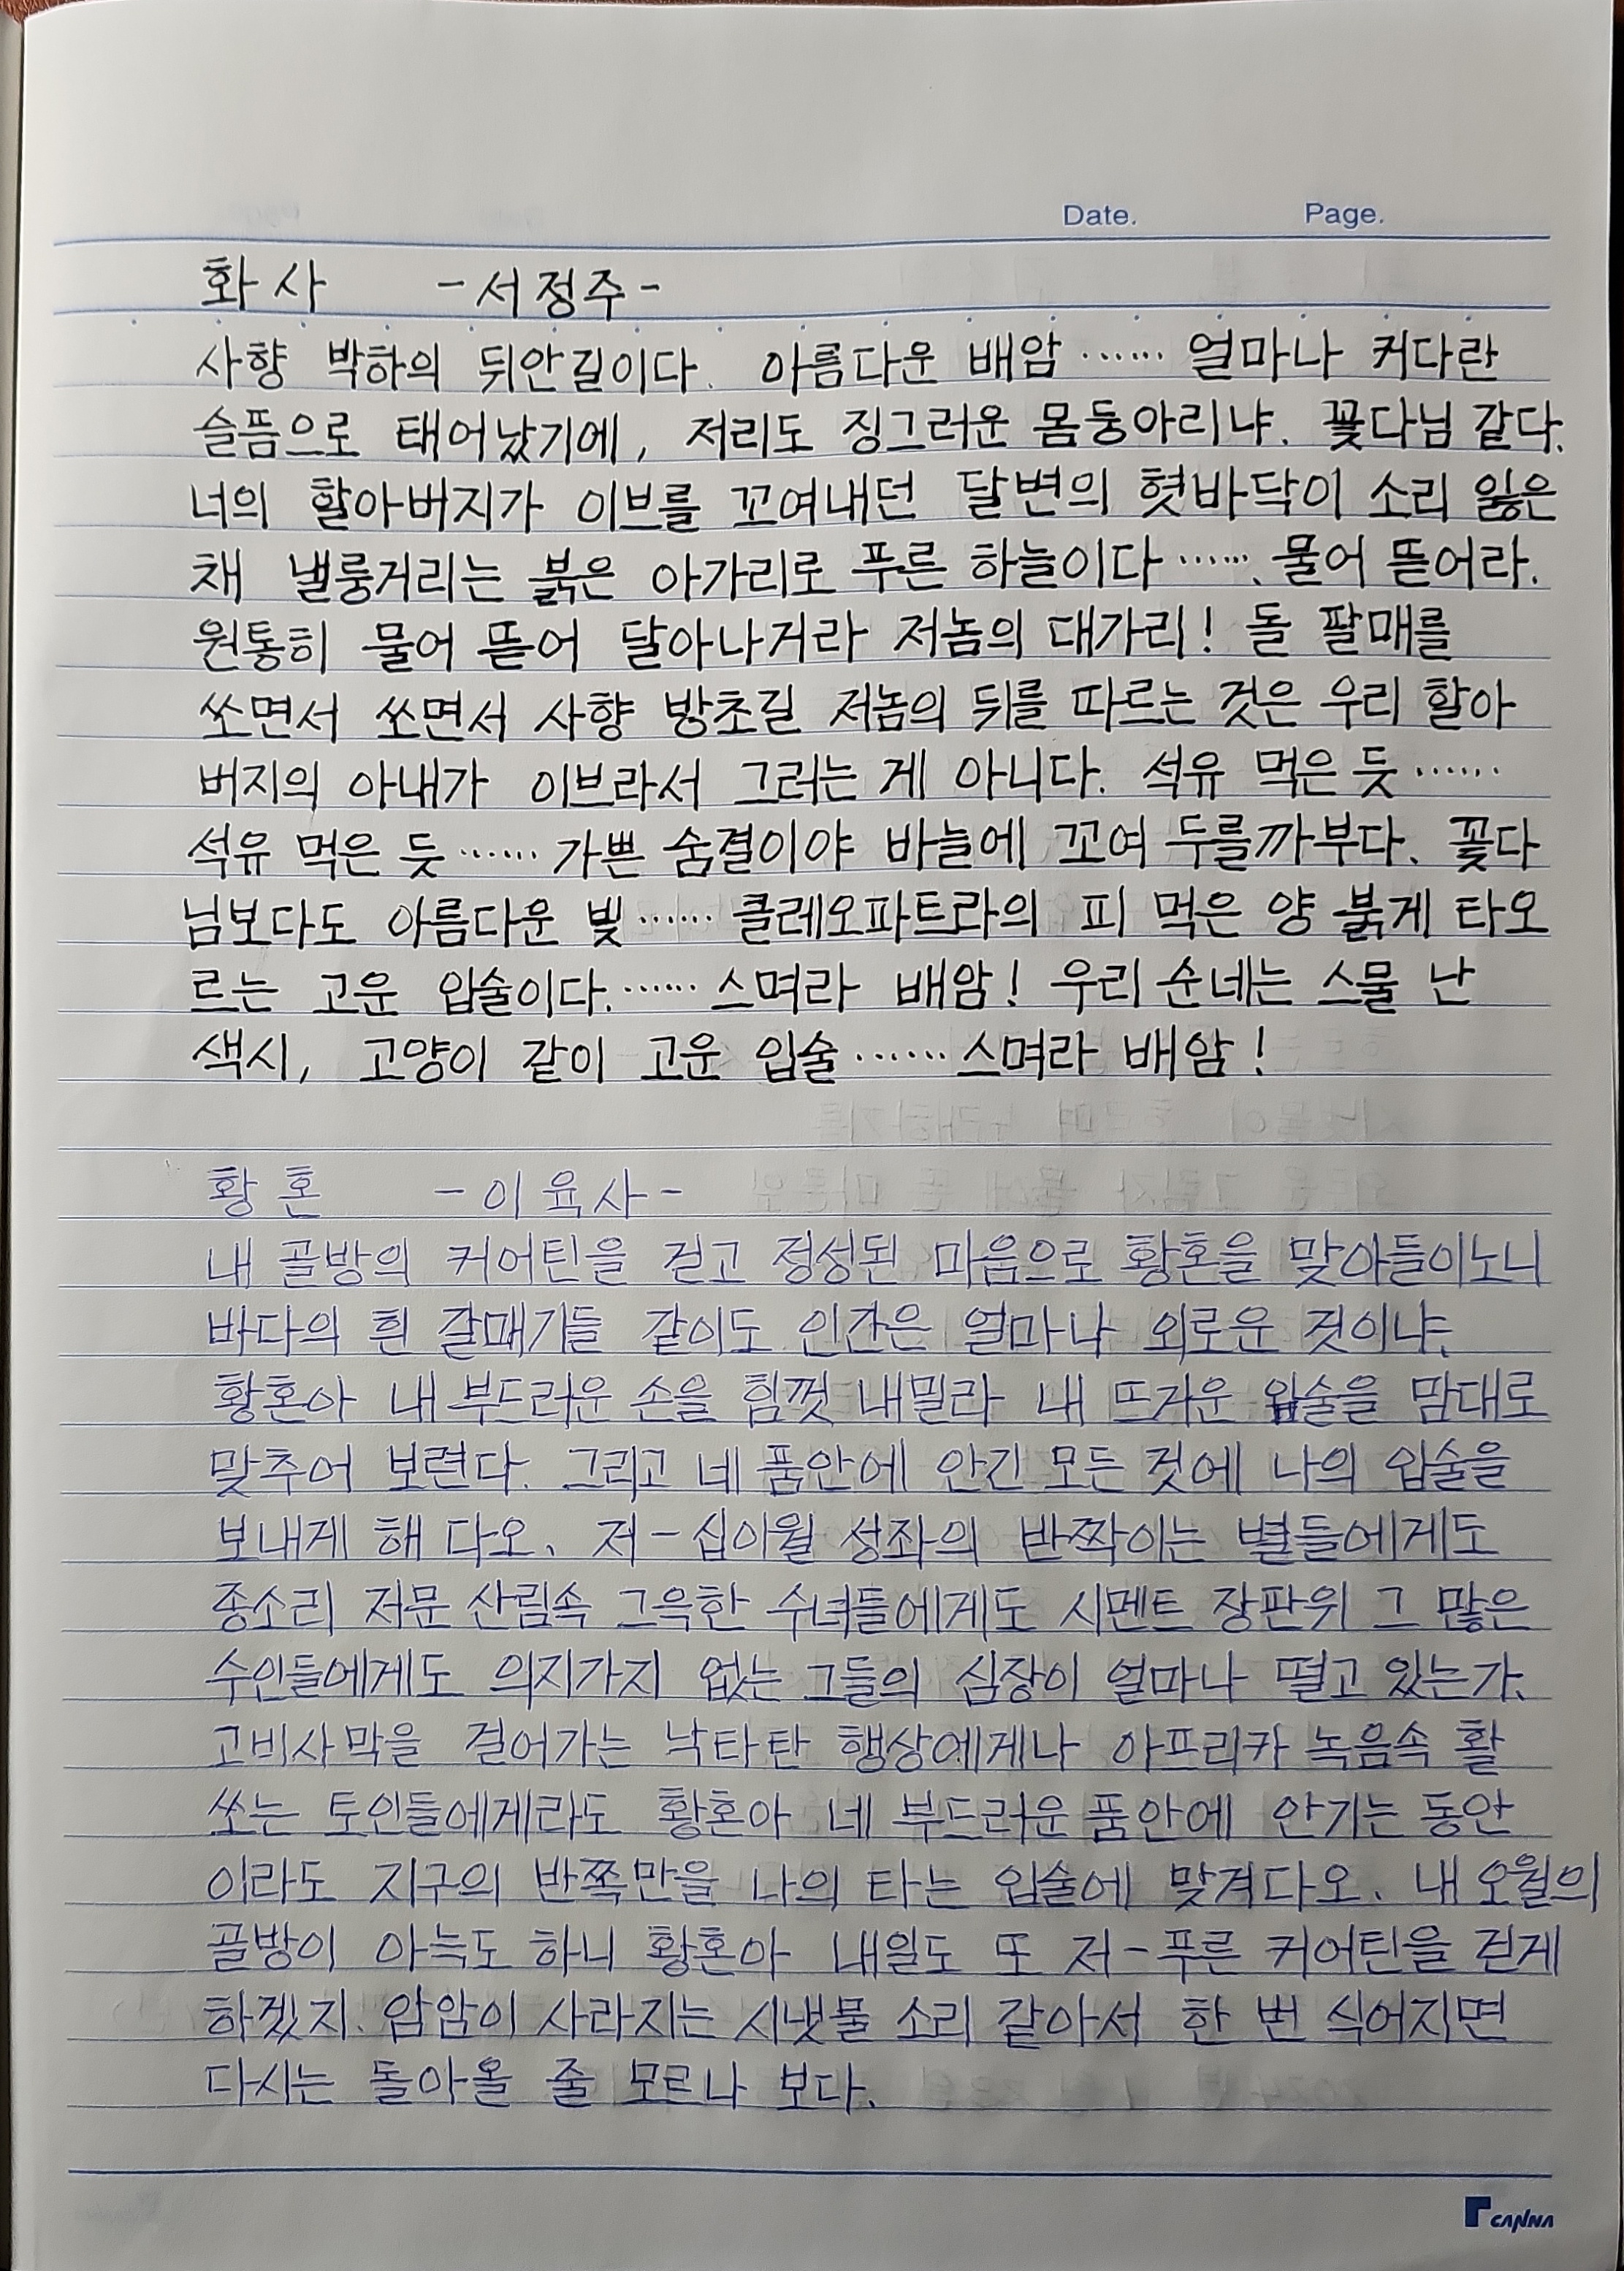 Date. Page.
화사 -서정주-
사향 박하의 뒤안길이다. 아름다운 배암 ‥‥‥ 얼마나 커다란
슬픔으로 태어났기에, 저리도 징그러운 몸둥아리냐. 꽃다님 같다.
너의 할아버지가 이브를 꼬여내던 달변의 혓바닥이 소리 잃은
채 낼룽거리는 붉은 아가리로 푸른 하늘이다 ‥‥‥. 물어 뜯어라.
원통히 물어 뜯어 달아나거라 저놈의 대가리! 돌 팔매를
쏘면서 쏘면서 사향 방초길 저놈의 뒤를 따르는 것은 우리 할아
버지의 아내가 이브라서 그러는 게 아니다. 석유 먹은 듯 ‥‥‥
석유 먹은 듯 ‥‥‥ 가쁜 숨결이야 바늘에 꼬여 두를까부다. 꽃다
님보다도 아름다운 빛 ‥‥‥ 클레오파트라의 피 먹은 양 붉게 타오
르는 고운 입술이다. ‥‥‥ 스며라 배암! 우리 순네는 스물 난
색시, 고양이 같이 고운 입술 ‥‥‥ 스며라 배암!
황혼 -이육사-
내 골방의 커어틴을 걷고 정성된 마음으로 황혼을 맞아들이노니
바다의 흰 갈매기들 같이도 인간은 얼마나 외로운 것이냐.
황혼아 내 부드러운 손을 힘껏 내밀라 내 뜨거운 입술을 맘대로
맞추어 보련다. 그리고 네 품안에 안긴 모든 것에 나의 입술을
보내게 해 다오. 저-십이월 성좌의 반짝이는 별들에게도
종소리 저문 산림속 그윽한 수녀들에게도 시멘트 장판위 그 많은
수인들에게도 의지가지 없는 그들의 심장이 얼마나 떨고 있는가.
고비사막을 걸어가는 낙타탄 행상에게나 아프리카 녹음속 활
쏘는 토인들에게라도 황혼아 네 부드러운 품안에 안기는 동안
이라도 지구의 반쪽만을 나의 타는 입술에 맞겨다오. 내 오월의
골방이 아늑도 하니 황혼아 내일도 또 저-푸른 커어틴을 걷게
하겠지. 암암이 사라지는 시냇물 소리 같아서 한 번 식어지면
다시는 돌아올 줄 모르나 보다.
CANNA